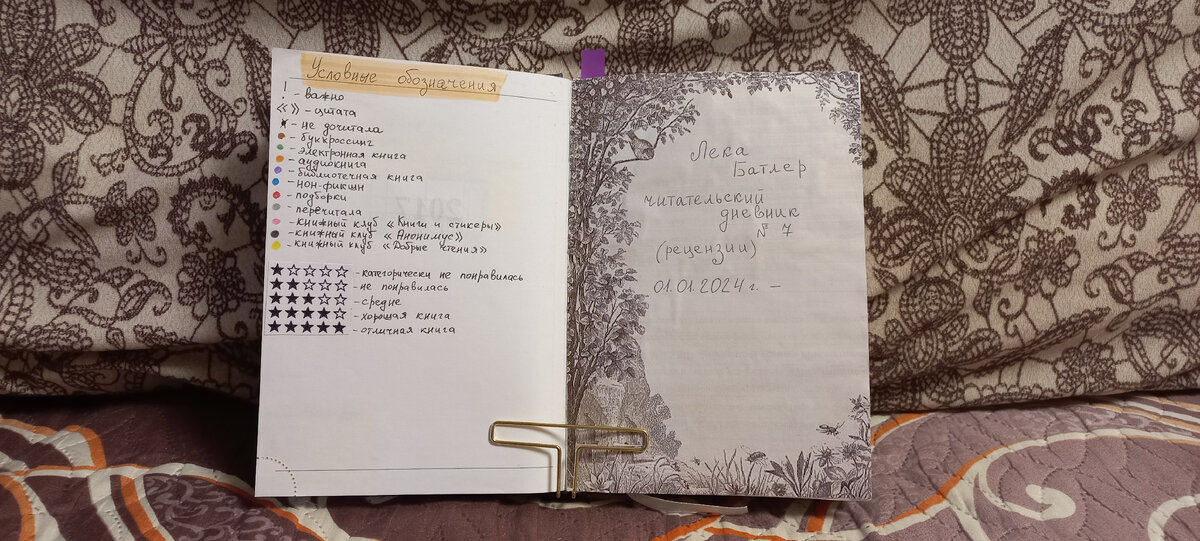 Условные обозначения
! - важно
«» - цитата
★ - не дочитала
- буккроссинг
- электронная книга
- аудиокнига
- библиотечная книга
- нон-фикшн
- подборки
- перечитала
- книжный клуб «Книги и стикеры»
- книжный клуб «Анонимус»
- книжный клуб «Добрые чтения»
★☆☆☆☆ - категорически не понравилась
★★☆☆☆ - не понравилась
★★★☆☆ - средне
★★★★☆ - хорошая книга
★★★★★ - отличная книга
Лека
Батлер
читательский
дневник
№ 7
(рецензии)
01.01.2024 г. -